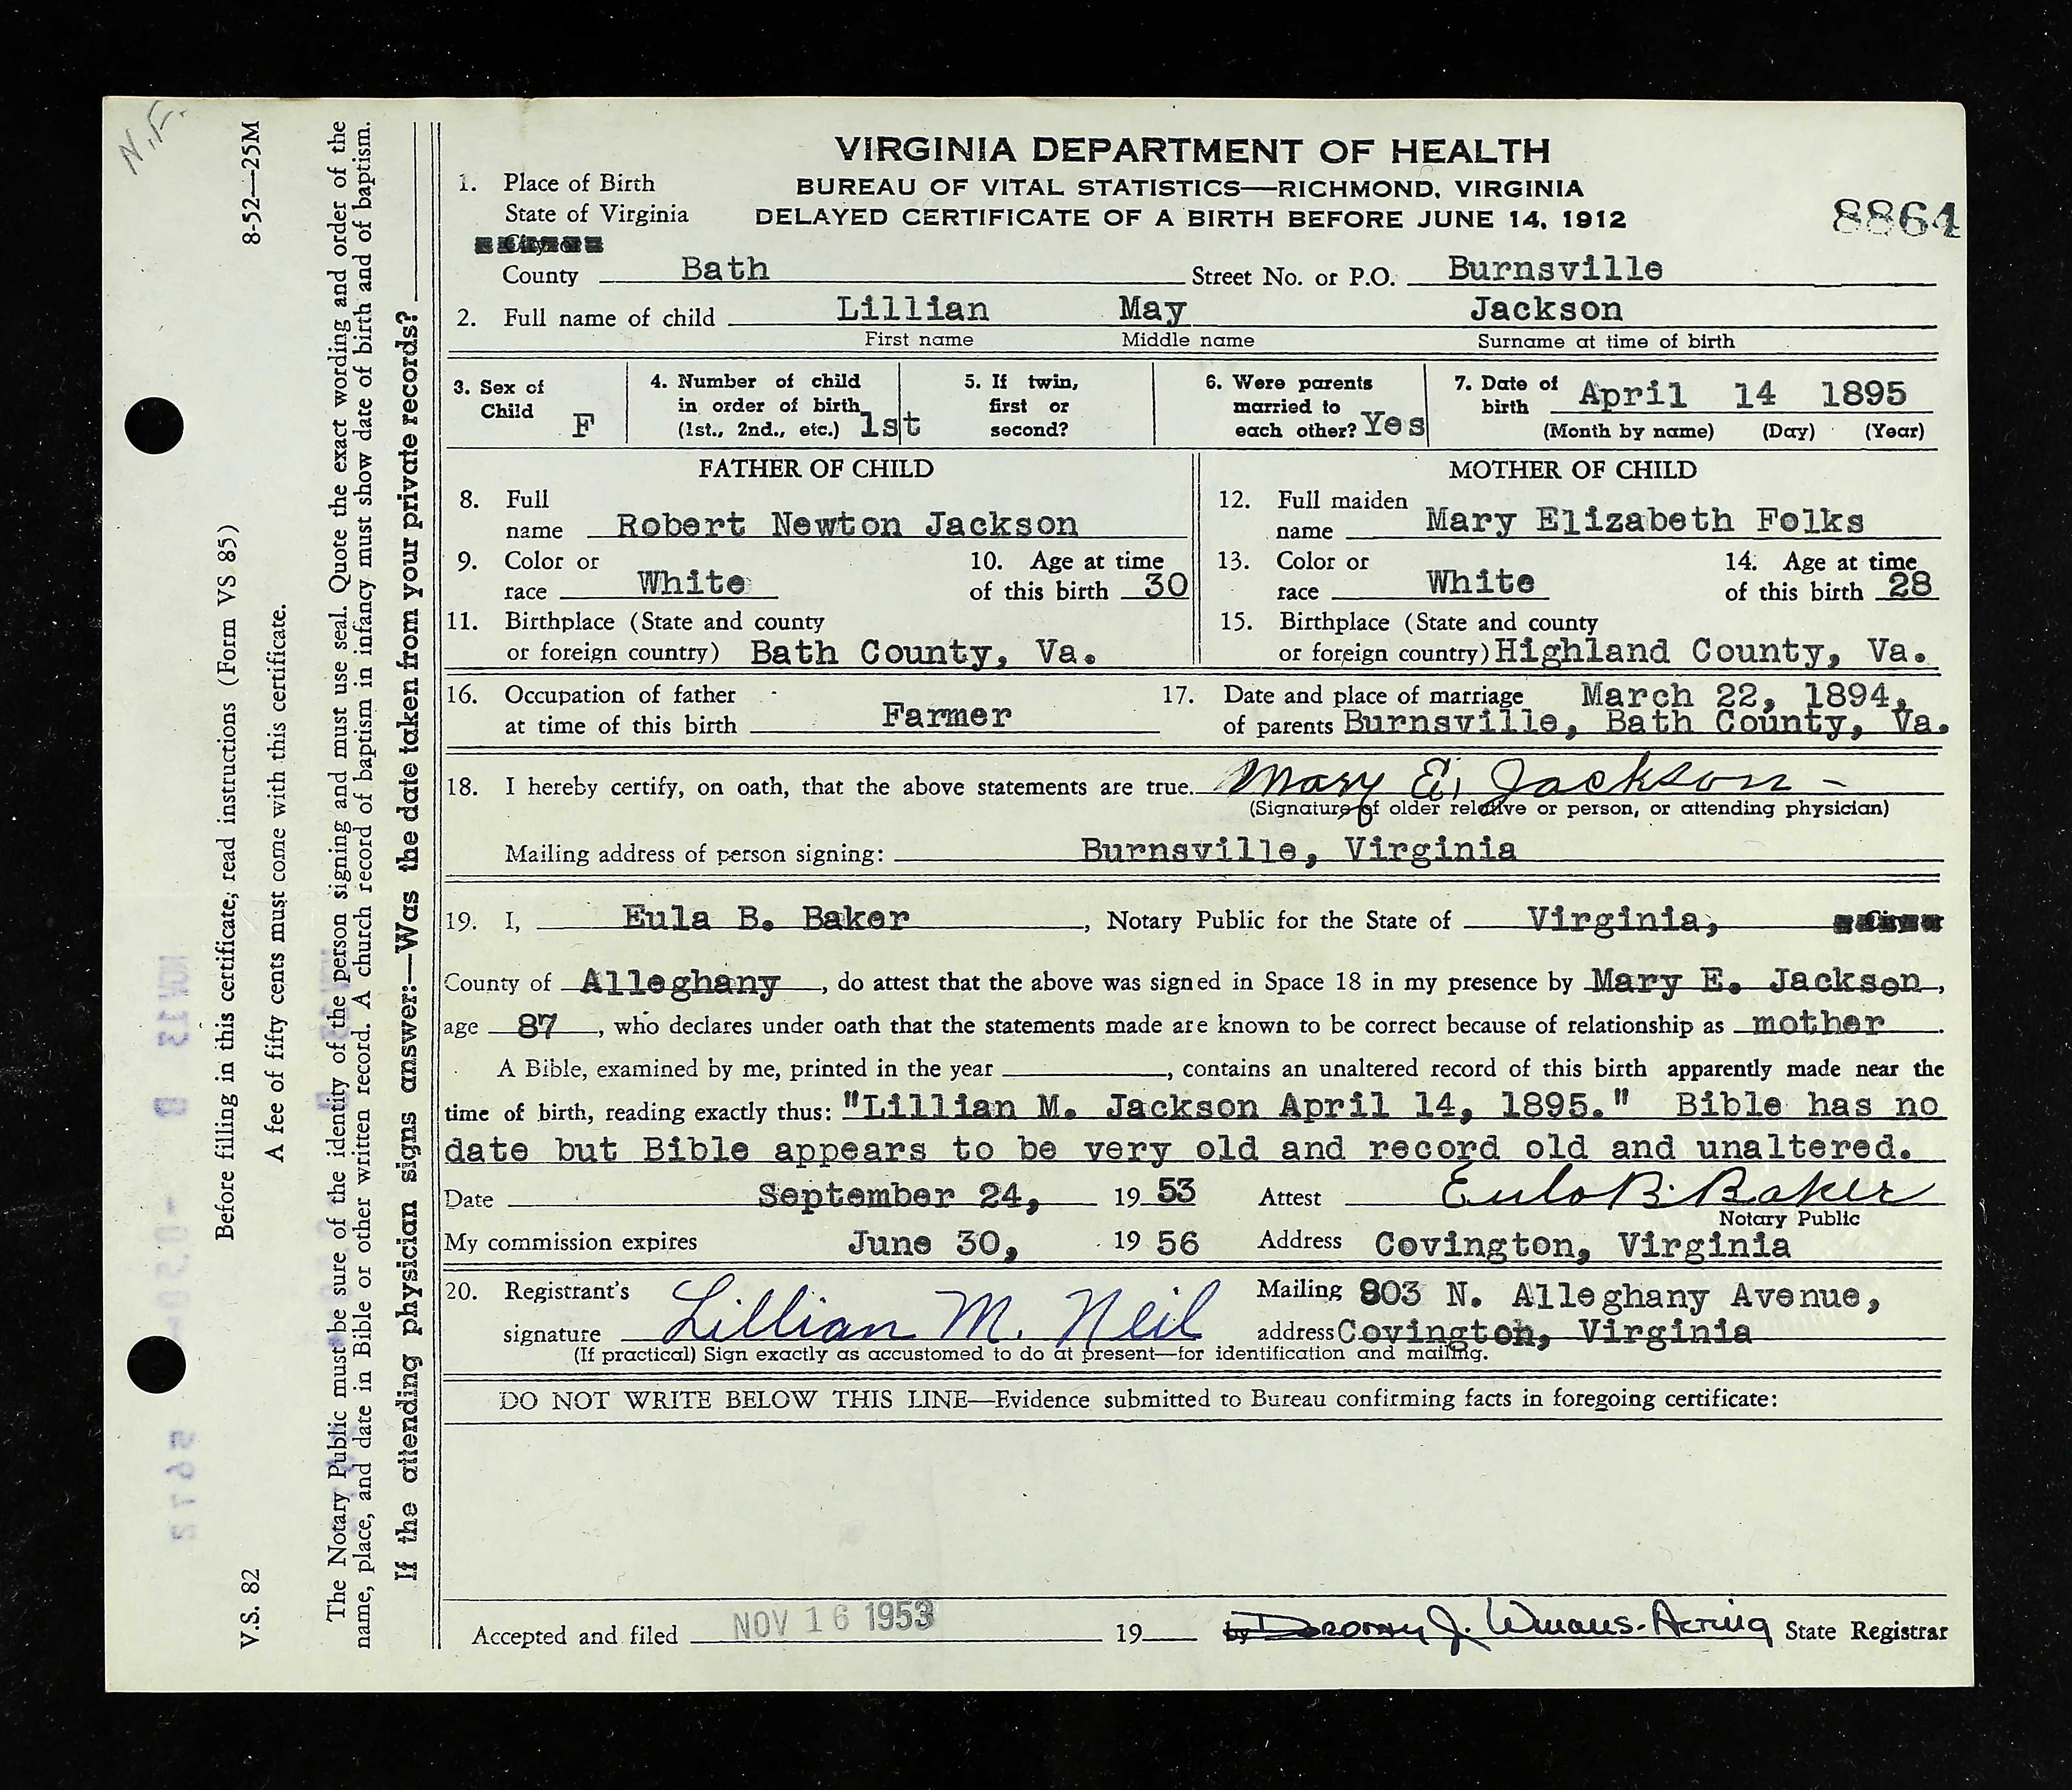 N.F.
8-52—25M
V.S. 82
Before filling in this certificate, read instructions (Form VS 85)
A fee of fifty cents must come with this certificate.
The Notary Public must be sure of the identity of the person signing and must use seal. Quote the exact wording and order of the
name, place, and date in Bible or other written record. A church record of baptism in infancy must show date of birth and of baptism.
If the attending physician signs answer:—Was the date taken from your private records?
VIRGINIA DEPARTMENT OF HEALTH
BUREAU OF VITAL STATISTICS—RICHMOND, VIRGINIA
DELAYED CERTIFICATE OF A BIRTH BEFORE JUNE 14, 1912
8864
1. Place of Birth
State of Virginia
City or
County Bath Street No. or P.O. Burnsville
2. Full name of child Lillian May Jackson
First name Middle name Surname at time of birth
3. Sex of Child F
4. Number of child in order of birth (1st., 2nd., etc.) 1st
5. If twin, first or second?
6. Were parents married to each other? Yes
7. Date of birth April 14 1895
(Month by name) (Day) (Year)
FATHER OF CHILD
8. Full name Robert Newton Jackson
9. Color or race White
10. Age at time of this birth 30
11. Birthplace (State and county
or foreign country) Bath County, Va.
MOTHER OF CHILD
12. Full maiden name Mary Elizabeth Folks
13. Color or race White
14. Age at time of this birth 28
15. Birthplace (State and county
or foreign country) Highland County, Va.
16. Occupation of father
at time of this birth Farmer
17. Date and place of marriage March 22, 1894,
of parents Burnsville, Bath County, Va.
18. I hereby certify, on oath, that the above statements are true. Mary E. Jackson
(Signature of older relative or person, or attending physician)
Mailing address of person signing: Burnsville, Virginia
19. I, Eula B. Baker, Notary Public for the State of Virginia, City or
County of Alleghany, do attest that the above was signed in Space 18 in my presence by Mary E. Jackson,
age 87, who declares under oath that the statements made are known to be correct because of relationship as mother.
A Bible, examined by me, printed in the year , contains an unaltered record of this birth apparently made near the
time of birth, reading exactly thus: "Lillian M. Jackson April 14, 1895." Bible has no
date but Bible appears to be very old and record old and unaltered.
Date September 24, 19 53 Attest Eula B. Baker
Notary Public
My commission expires June 30, 19 56 Address Covington, Virginia
20. Registrant's signature Lillian M. Neil
Mailing 803 N. Alleghany Avenue,
address Covington, Virginia
(If practical) Sign exactly as accustomed to do at present—for identification and mailing.
DO NOT WRITE BELOW THIS LINE—Evidence submitted to Bureau confirming facts in foregoing certificate:
Accepted and filed NOV 16 1953 19 by Dorothy J. Winans-Acting State Registrar